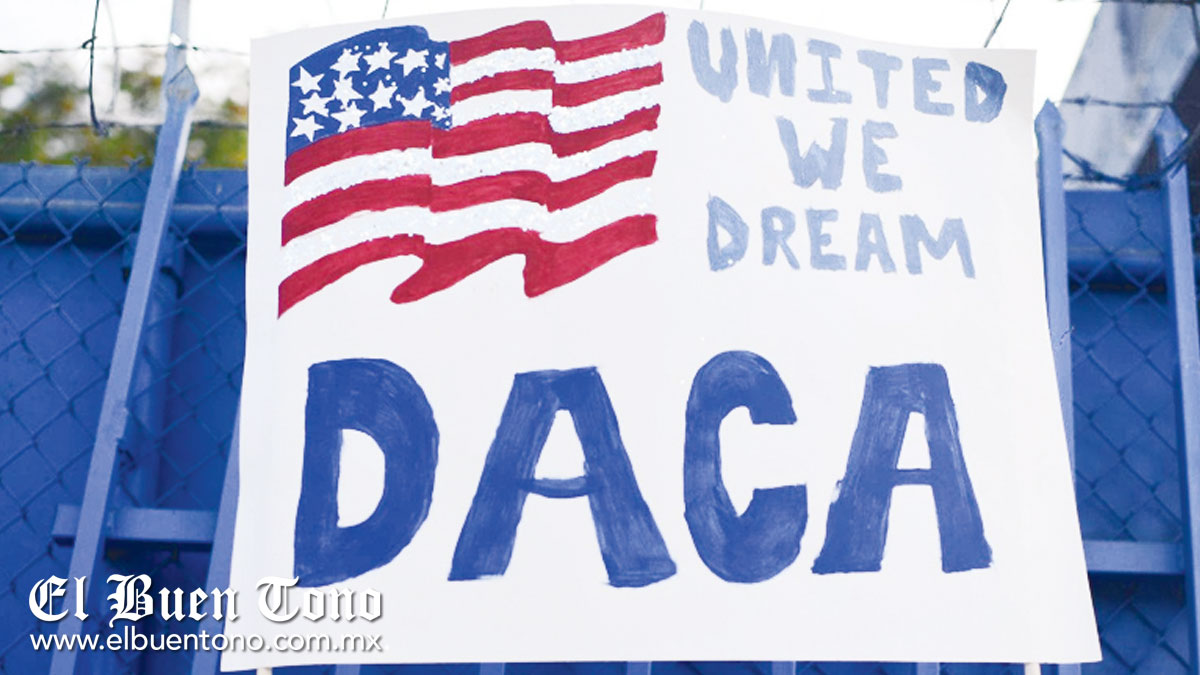 UNITED
WE
DREAM
DACA
El Buen Tono
www.elbuentono.com.mx